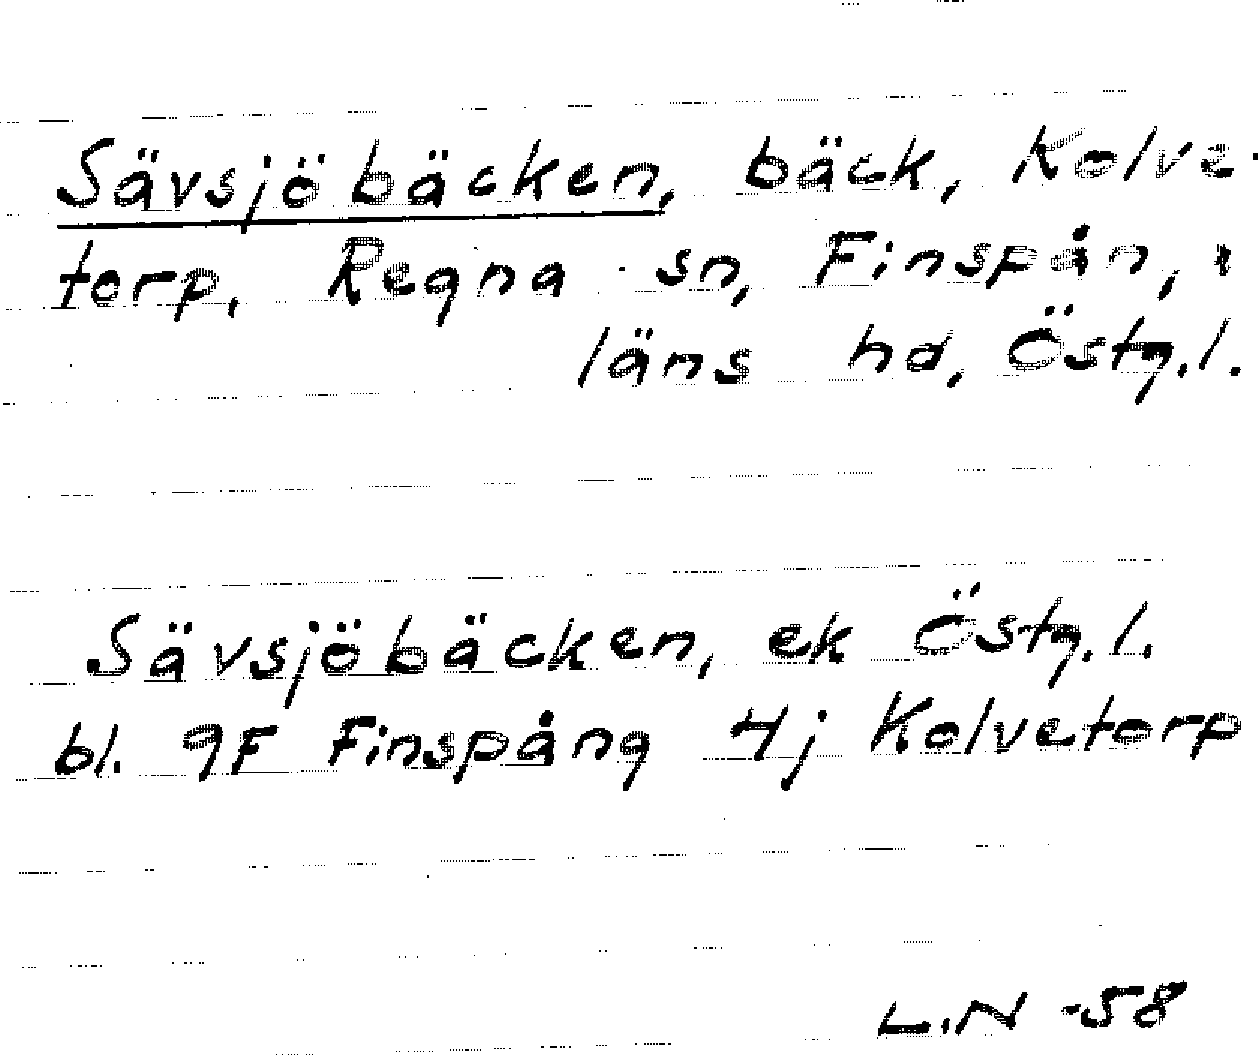 Sävsjöbäcken, bäck, Kolve-
torp, Regna sn, Finspång,
läns hd, Östg.l.
Sävsjöbäcken, ek Östg.l.
bl. 9F Finspång 4j Kolvetorp
L.N -58